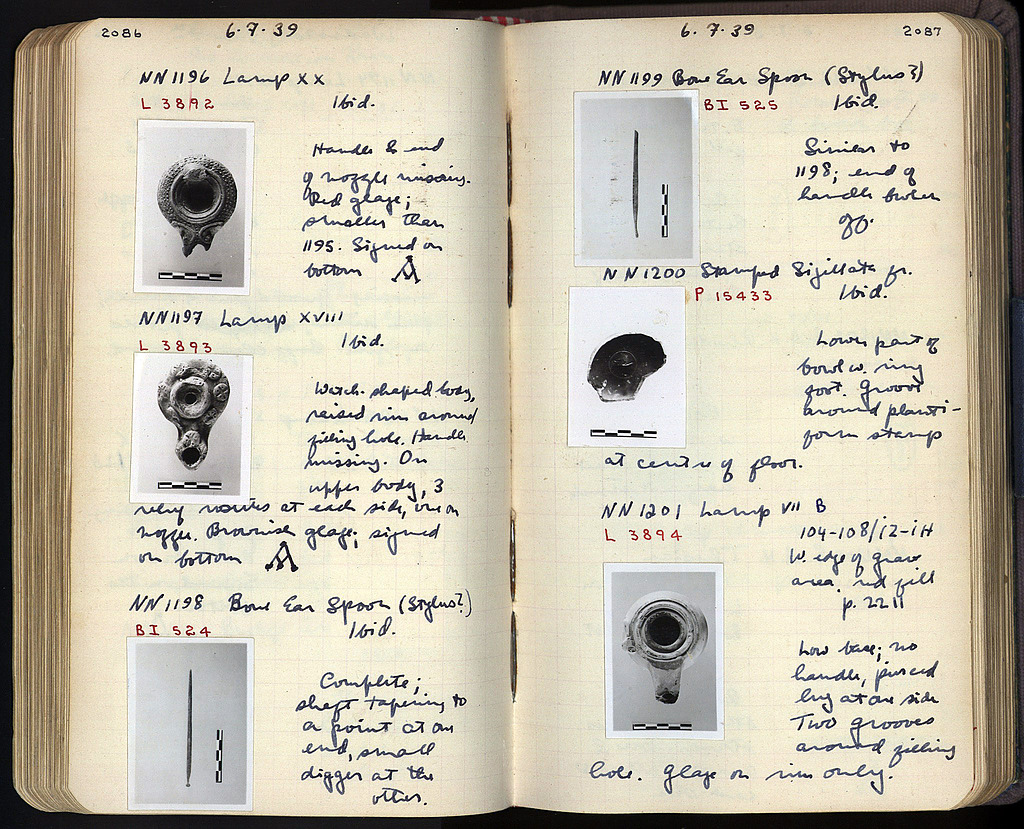 2086
6.7.39
NN1196 Lamp XX
L 3892
Ibid.
Handle & end
of nozzle missing.
Red glaze;
smaller than
1195. Signed on
bottom
NN1197 Lamp XVIII
L 3893
Ibid.
Watch-shaped body,
raised rim around
filling hole. Handle
missing. On
upper body, 3
relief rosettes at each side, one on
nozzle. Brownish glaze; signed
on bottom
NN1198 Bone Ear Spoon (Stylus?)
BI 524
Ibid.
Complete;
shaft tapering to
a point at one
end, small
digger at the
other.
6.7.39
2087
NN1199 Bone Ear Spoon (Stylus?)
BI 525
Ibid.
Similar to
1198; end of
handle broken
off.
NN1200 Stamped Sigillata fr.
P 15433
Ibid.
Lower part of
bowl w. ring
foot. Groove
around planti-
form stamp
at centre of floor.
NN1201 Lamp VII B
L 3894
104-108/IZ-IH
W. edge of grave
area, red fill
p. 2211
Low base; no
handle, pierced
lug at one side
Two grooves
around filling
hole. Glaze on rim only.